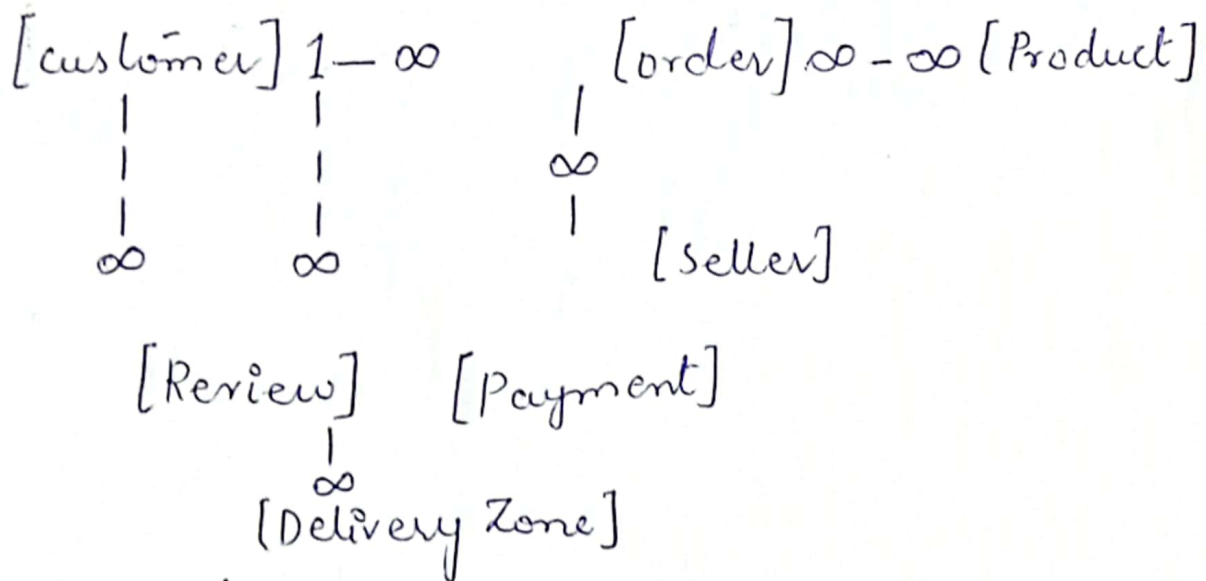 [customer] 1 — ∞ [order] ∞ - ∞ [Product]
| | |
| | ∞
| | |
∞ ∞ [seller]
[Review] [Payment]
|
∞
[Delivery Zone]